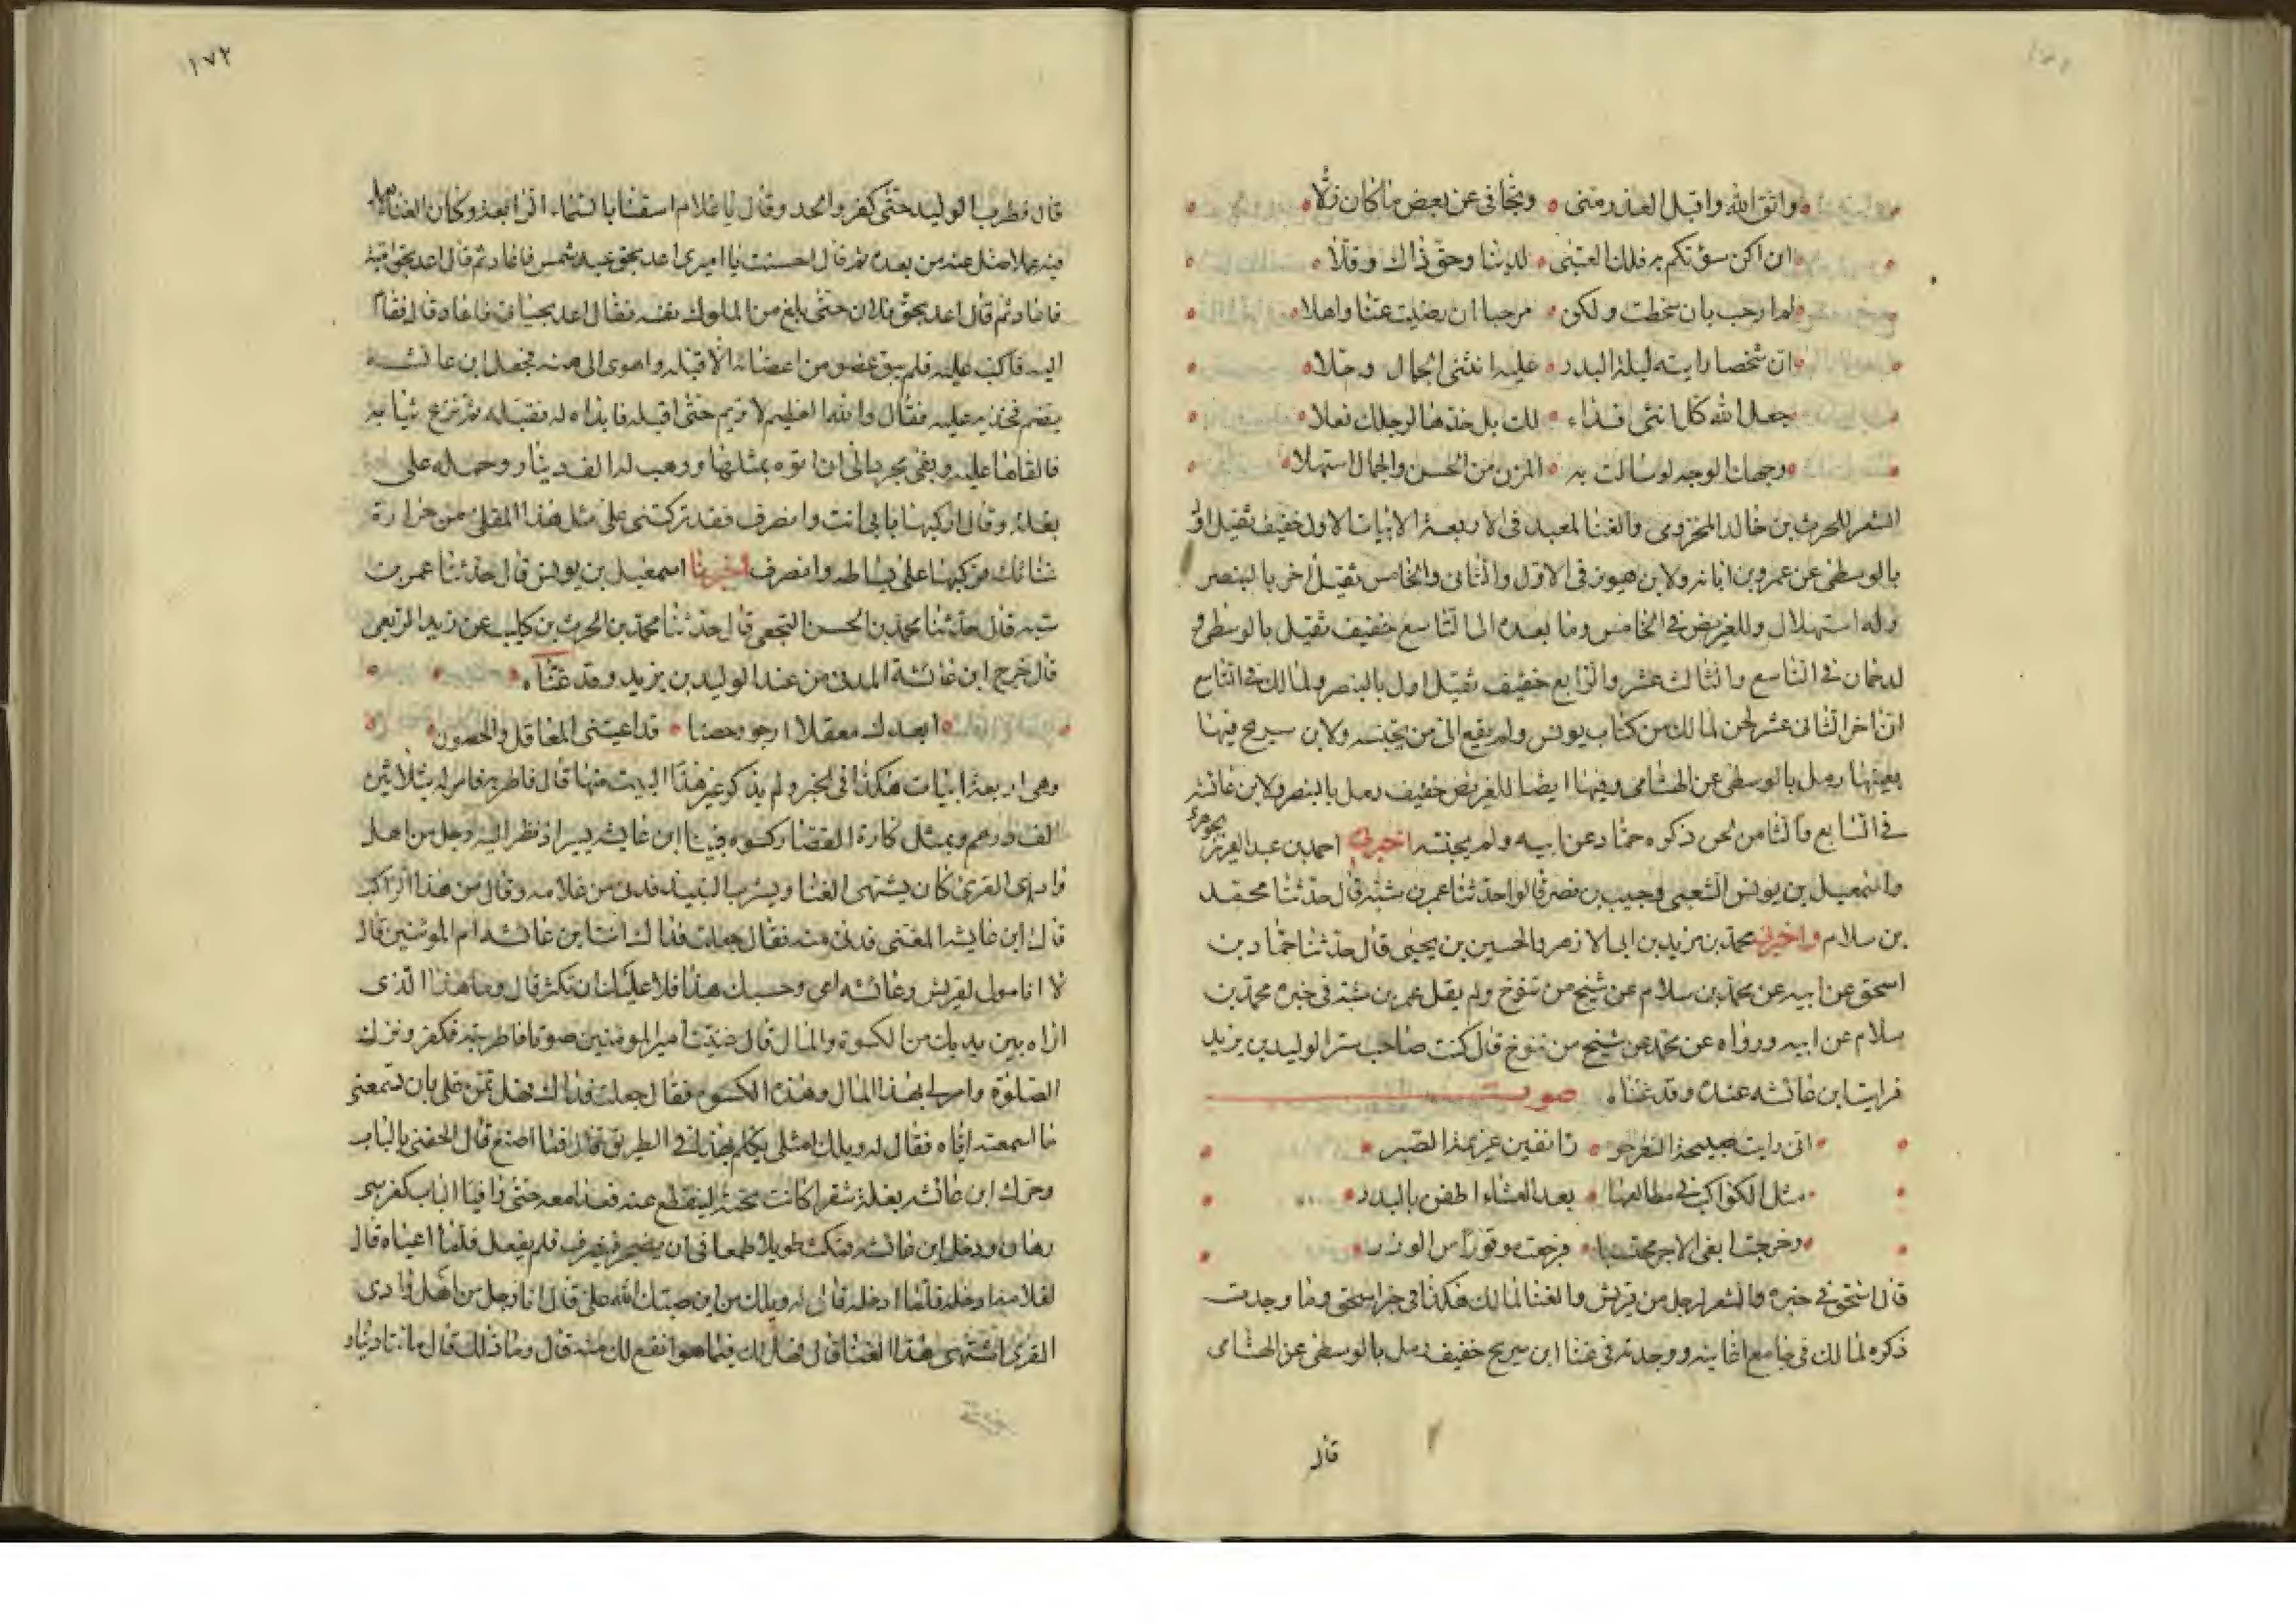 واتق الله واقبل العذر منى وتجافى عن بعض ما كان زلا
ان اكن سؤتكم به فلك العتبى لدينا وحق ذاك وقلا
لم ارحب بان سخطت ولكن مرحبا ان رضيت عنا واهلا
ان شخصا رايته ليلة البدر عليه انثنى الجمال وحلا
جعل الله كل انثى فداء لك بل خذها لرجلك نعلا
وجهك الوجه لو سالت به المزن من الحسن والجمال استهلا
الشعر للحرث بن خالد المخزومى والغنا لمعبد فى الاربعة الابيات الاول خفيف ثقيل اول
بالوسطى عن عمرو بن بانة ولابن هوبر فى الاول والثانى والخامس ثقيل اخر بالبنصر
وله استهلال وللغريض فى الخامس وما بعده الى التاسع خفيف ثقيل بالوسطى و
لدحمان فى التاسع والثالث عشر والرابع خفيف ثقيل اول بالبنصر ولمالك فى التاسع
الى اخر الثانى عشر لحن لمالك من كتاب يونس ولم يقع الى من يجنسه ولابن سريج فيها
بعينها رمل بالوسطى عن الهشامى وفيها ايضا للغريض خفيف رمل بالبنصر ولابن عائشة
فى السابع والثامن لحن ذكره حماد عن ابيه ولم يجنسه اخبرنى احمد بن عبد العزيز الجوهرى
واسمعيل بن يونس الشعبى وحبيب بن نصر قالوا حدثنا عمر بن شبة قال حدثنا محمد
بن سلام واخبرنى محمد بن مزيد بن ابى الازهر والحسين بن يحيى قال حدثنا حماد بن
اسحق عن ابيه عن محمد بن سلام عن شيخ من تنوخ ولم يقل عمر بن شبة فى خبره محمد بن
سلام عن ابيه ورواه عن محمد عن شيخ من تنوخ قال كنت صاحب ستر الوليد بن يزيد
فرايت ابن عائشه عنده وقد غناه صوت
انى رايت صبيحة النفر حورا نفين عزيمة الصبر
مثل الكواكب فى مطالعها بعد العشاء اطفن بالبدر
وخرجت ابغى الاجر محتسبا فرجعت موقورا من الوزر
قال اسحق فى خبره والشعر لرجل من قريش والغنا لمالك هكذا فى خبر اسحق وما وجدت
ذكره لمالك فى جامع اغانيه ووجدته فى غنا ابن سريج خفيف رمل بالوسطى عن الهشامى
قال
١٧٢
قال فطرب الوليد حتى كفر والحد وقال يا غلام اسقنا بالسماء الرابعة وكان الغنا يعمل
فيه عملا ضل عنه من بعده ثم قال احسنت يا اميرى اعد بحق عبد شمس فاعاد ثم قال اعد بحق امية
فاعاد ثم قال اعد بحق فلان حتى بلغ من الملوك نفسه فقال اعد بحياتى فاعاد قال فقام
اليه فاكب عليه فلم يبق عضو من اعضائه الا قبله واهوى الى هنه فجعل ابن عائشه
يضم فخذيه عليه فقال والله العظيم لا تريم حتى اقبله فابداه له فقبله ثم نزع ثيابه
فالقاها عليه وبقى مجردا الى ان اتوه بمثلها ووهب له الف دينار وحمله على
بغلة وقال اركبها بابى انت وانصرف فقد تركتنى على مثل هذا المقلى من حرارة
غنائك فركبها على بساطه وانصرف اخبرنا اسمعيل بن يونس قال حدثنا عمر بن
شبه قال حدثنا محمد بن الحسن النجعى قال حدثنا محمد بن الحرث بن كليب عن زيد الربعى
قال خرج ابن عائشة المدنى من عند الوليد بن يزيد وقد غناه
ابعدك معقلا ارجو وحصنا قد اعيتنى المعاقل والحصون
وهى اربعة ابيات هكذا فى الخبر ولم يذكر غير هذا البيت منها قال فاطربه فامر له بثلاثين
الف درهم وبمثل كارة القصار كسوه فبينا ابن عايشه يسير اذ نظر اليه رجل من اهل
وادى القرى كان يشتهى الغنا ويشرب النبيذ فدنى من غلامه وقال من هذا الراكب
قال ابن عايشه المغنى فدنى منه فقال جعلت فداك انت ابن عائشه ام المومنين قال
لا انا مولى لقريش وعائشه امى وحسبك هذا فلا عليك ان تكثر قال وما هذا الذى
اراه بين يديك من الكسوة والمال قال غنيت امير المومنين صوتا فاطربته فكفر وترك
الصلوة وامر لى بهذا المال وهذه الكسوه فقال جعلت فداك فهل تمن على بان تسمعنى
ما اسمعته اياه فقال له ويلك امثلى يكلم بهذا فى الطريق قال فما اصنع قال الحقنى بالباب
وحرك ابن عائشه بغلة شقرا كانت تحته لينقطع عنه فعدا معه حتى وافيا الباب كفرسى
رهان ودخل ابن عائشه فمكث طويلا طمعا فى ان يضجر فينصرف فلم يفعل فلما اعياه قال
لغلامه ادخله فلما ادخله قال له ويلك من اين صبك الله على قال انا رجل من اهل وادى
القرى اشتهى هذا الغنا قال فهل لك فيما هو انفع لك منه قال وما ذلك قال مائتا دينار